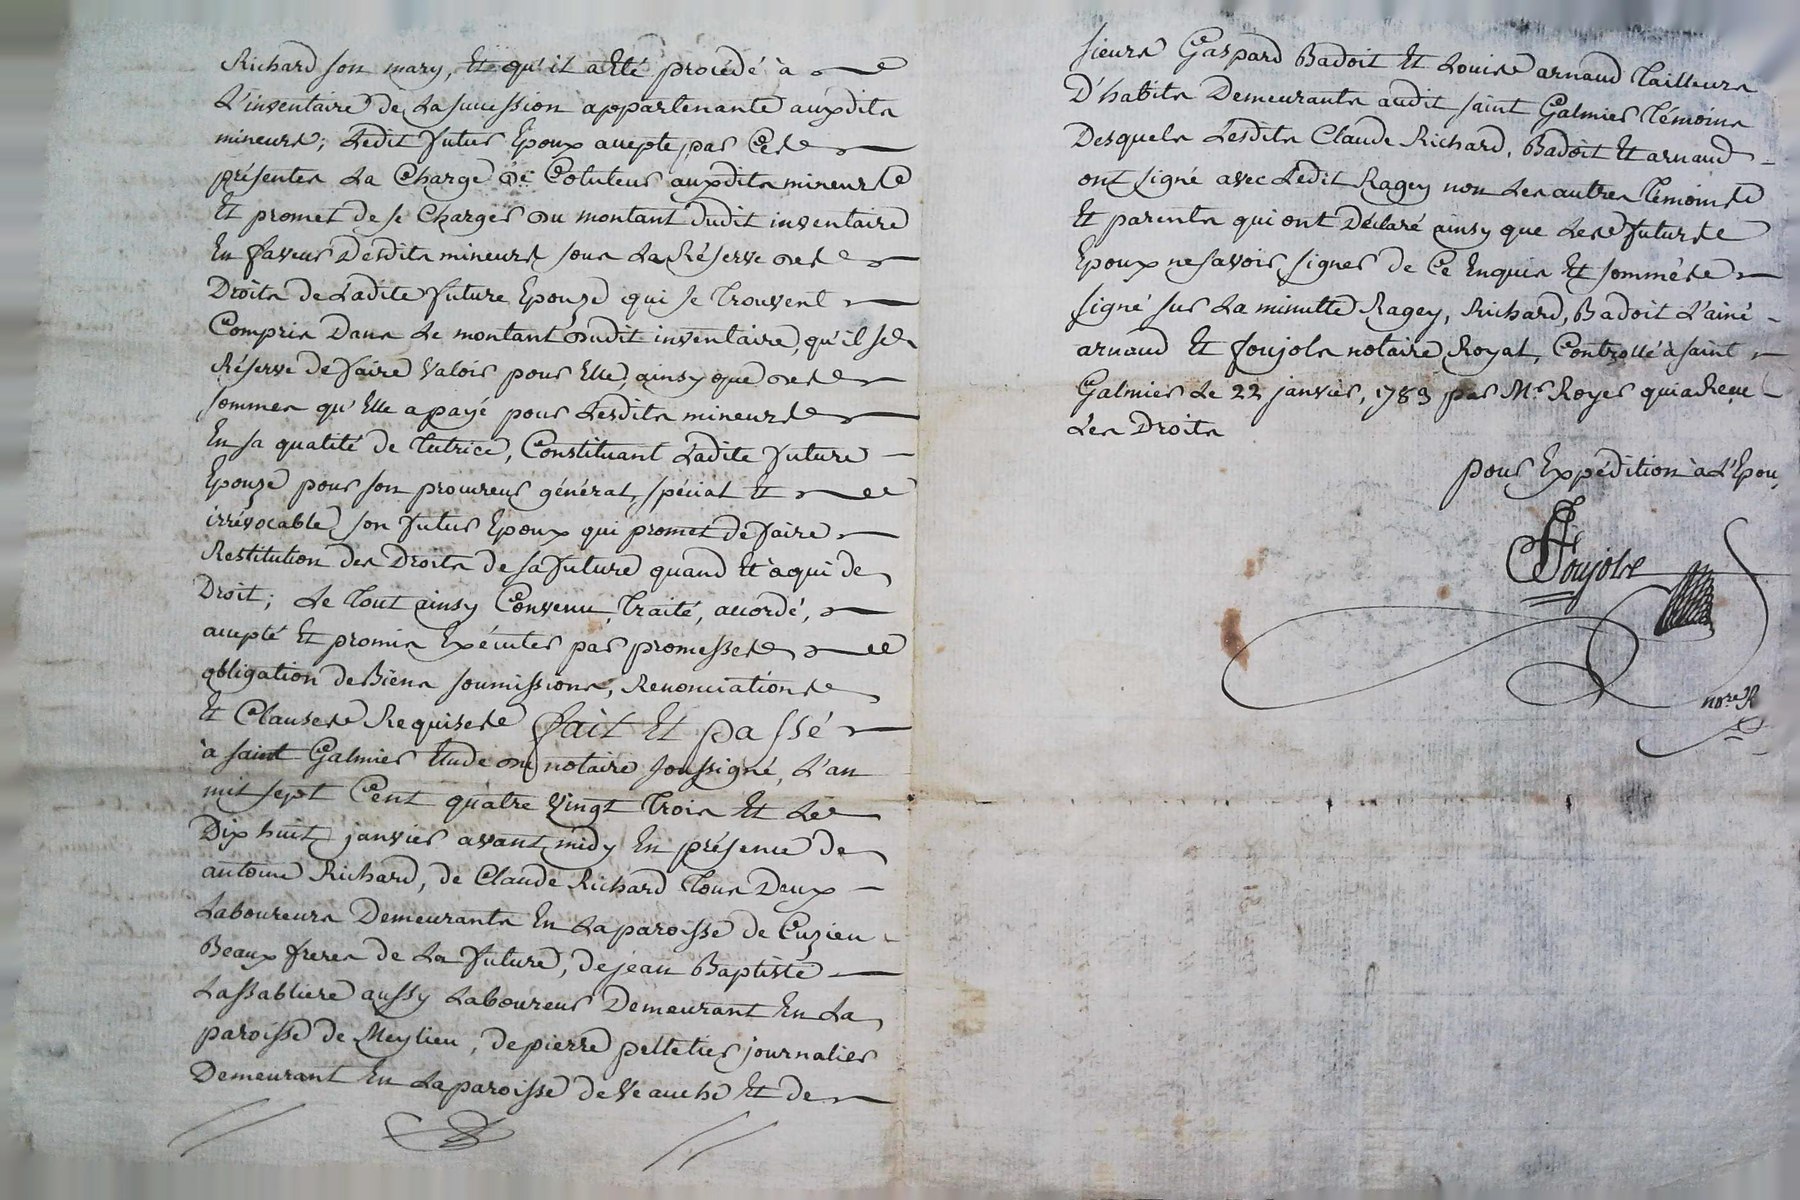 Richard son mary, Et qu'il a Eté procédé à
L'inventaire de La succession appartenante auxdits
mineurs; Ledit futur Epoux accepte par Ces
présentes La Charge de Cotuteur auxdits mineurs
Et promet de se Charger du montant dudit inventaire
En faveur Desdits mineurs sous La Réserve des
Droits de Ladite future Epouze qui se trouvent
Compris Dans Le montant dudit inventaire, qu'il se
Réserve de faire Valoir pour Elle, ainsy que des
sommes qu'Elle a payé pour Lesdits mineurs
En sa qualité de tutrice, Constituant Ladite future
Epouze pour son procureur général, spécial Et
irrévocable son futur Epoux qui promet de faire
Restitution des Droits de sa future quand Et à qui de
Droit; Le tout ainsy Convenu, traité, accordé,
accepté Et promis Exécuter par promesses
obligation de Biens soumissions, Renonciations
Et Clauses Requises fait Et passé
à saint Galmier Etude du notaire soussigné, L'an
mil sept Cent quatre Vingt trois Et Le
Dix huit janvier avant midy En présence de
antoine Richard, de Claude Richard tous Deux
Laboureurs Demeurants En La paroisse de Cuzieu
Beaux freres de La future, de jean Baptiste
Lassabliere aussy Laboureur Demeurant En La
paroisse de Meylieu, de pierre pelletier journalier
Demeurant En La paroisse de Veauche Et de
sieurs Gaspard Badoit Et Louis arnaud tailleurs
D'habits Demeurants audit saint Galmier témoins
Desquels Lesdits Claude Richard, Badoit Et arnaud
ont signé avec Ledit Ragey non Les autres témoins
Et parents qui ont Déclaré ainsy que Les futurs
Epoux ne savoir signer de Ce Enquis Et sommés
signé sur La minutte Ragey, Richard, Badoit L'ainé
arnaud Et foujols notaire Royal, Controllé à saint
Galmier Le 22 janvier, 1783 par Mr Royer qui a Reçu
Les Droits
pour Expédition à L'Epou
Foujols
nore R